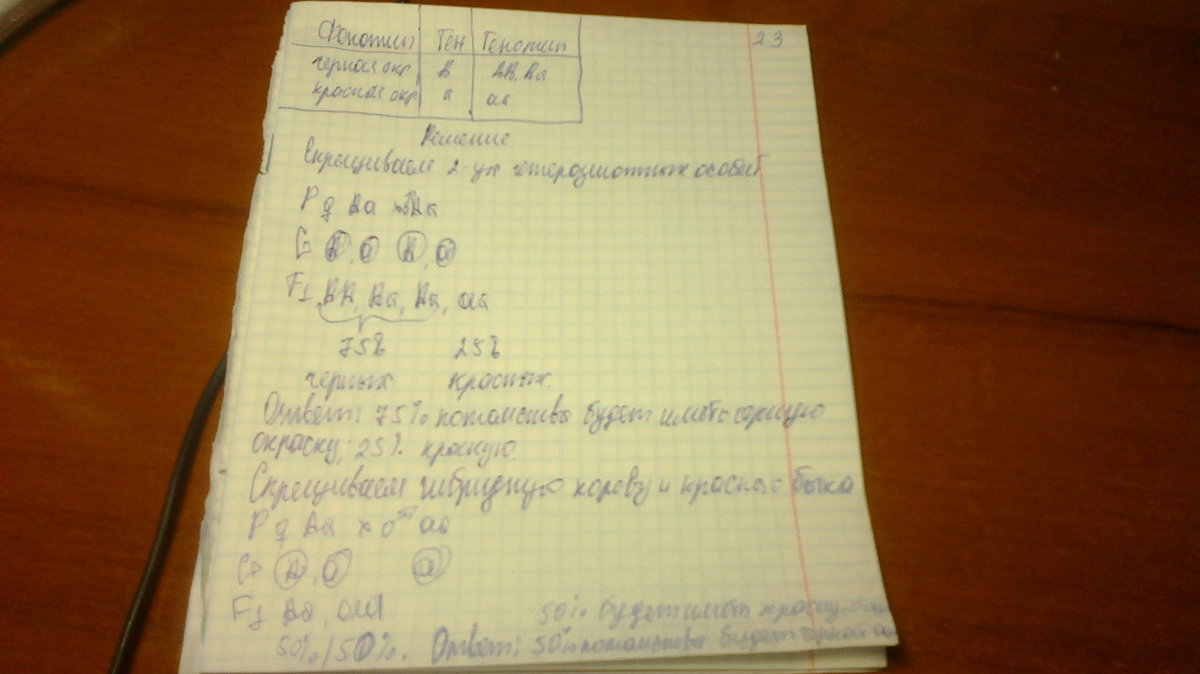 23
Фенотип Ген Генотип
черная окр. А АА, Аа
красная окр а аа
Решение
Скрещиваем 2-ух гетерозиготных особей
P ♀ Аа х ♂Аа
G А, а А, а
F1 АА, Аа, Аа, аа
75% 25%
черных красных.
Ответ: 75% потомства будет иметь черную
окраску, 25% красную.
Скрещиваем гибридную корову и красного быка
P ♀ Аа х ♂ аа
G А, а а
F1 Аа, аа
50% будет иметь красную
50%/50%. Ответ: 50% потомства будет черной